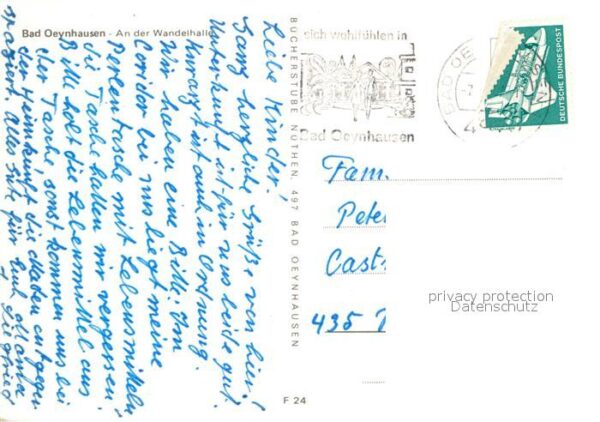 Bad Oeynhausen - An der Wandelhalle
Liebe Kinder!
Ganz herzliche Grüße von hier!
Unterkunft ist für uns beide gut.
Kurarzt ist auch in Ordnung.
Wir haben eine Bitte. Im
Corridor bei uns liegt meine
Perltasche mit Lebensmitteln,
die Tasche haben wir vergessen.
Bitte holt die Lebensmittel aus
der Tasche sonst kommen uns bei
der Heimkunft die Maden entgegen
spaziert. Alles Gute für Euch,
Siegfried
BÜCHERSTUBE NÜTHEN, 497 BAD OEYNHAUSEN
F 24
sich wohlfühlen in
Bad Oeynhausen
BAD OE
DEUTSCHE BUNDESPOST
Fam.
Pete
Cast
435
privacy protection
Datenschutz